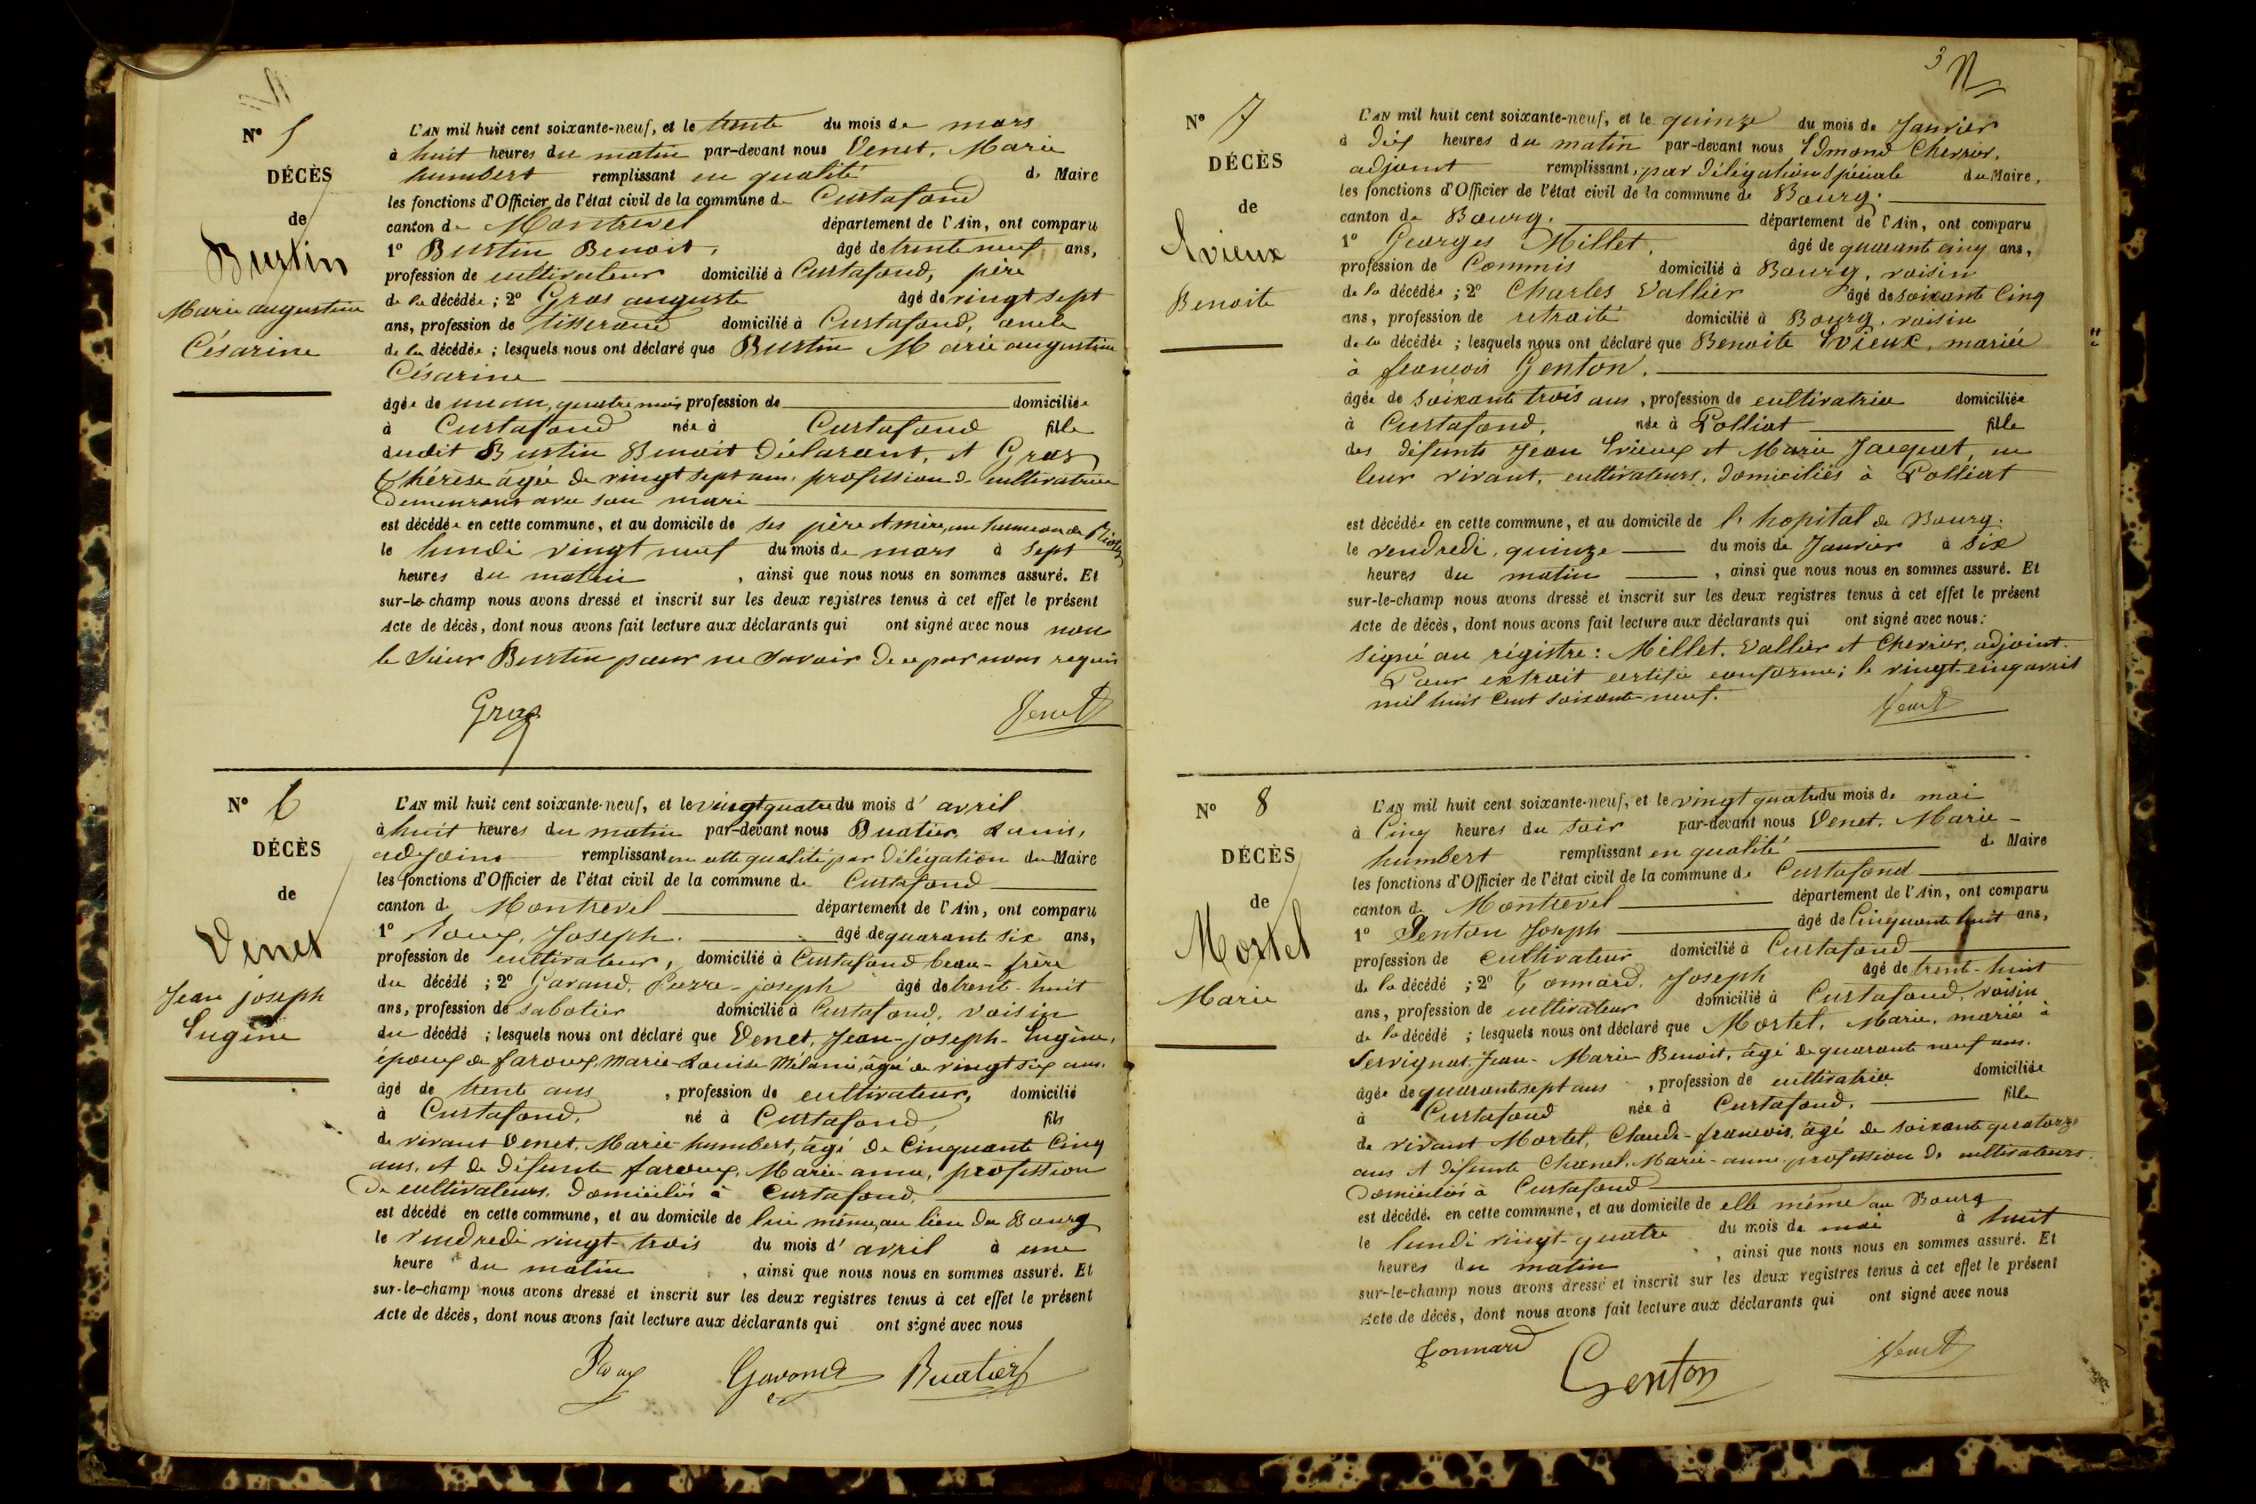 Nº 5
DÉCÈS
de
Burtin
Marie augustine
Césarine
L'AN mil huit cent soixante-neuf, et le trente du mois de mars
à huit heures du matin par-devant nous Venet, Marie
humbert remplissant en qualité de Maire
les fonctions d'Officier de l'état civil de la commune de Curtafond
canton de Montrevel département de l'Ain, ont comparu
1º Burtin Benoit, âgé de trente neuf ans,
profession de cultivateur domicilié à Curtafond, père
de la décédée ; 2º Gras auguste âgé de vingt sept
ans, profession de tisserand domicilié à Curtafond, oncle
de la décédée ; lesquels nous ont déclaré que Burtin Marie augustine
Césarine
âgée de un an, quatre mois profession de domiciliée
à Curtafond née à Curtafond fille
dudit Burtin Benoit déclarant, et Gras
Thérèse âgée de vingt sept ans, profession de cultivatrice
demeurant avec son mari
est décédée en cette commune, et au domicile de ses père et mère, au hameau de
le lundi vingt neuf du mois de mars à sept
heures du matin , ainsi que nous nous en sommes assuré. Et
sur-le-champ nous avons dressé et inscrit sur les deux registres tenus à cet effet le présent
Acte de décès, dont nous avons fait lecture aux déclarants qui ont signé avec nous non
le sieur Burtin pour ne savoir de ce par nous requis
Gras Venet
Nº 6
DÉCÈS
de
Venet
Jean joseph
Eugène
L'AN mil huit cent soixante-neuf, et le vingt quatre du mois d' avril
à huit heures du matin par-devant nous Buatier, Louis,
adjoint remplissant en cette qualité par délégation du Maire
les fonctions d'Officier de l'état civil de la commune de Curtafond
canton de Montrevel département de l'Ain, ont comparu
1º Joseph. âgé de quarante six ans,
profession de cultivateur, domicilié à Curtafond beau-frère
du décédé ; 2º Gavand, Pierre-joseph âgé de trente-huit
ans, profession de sabotier domicilié à Curtafond, voisin
du décédé ; lesquels nous ont déclaré que Venet, Jean-joseph-Eugène,
époux de faroux, Marie-Louise Mélanie, âgée de vingt six ans.
âgé de trente ans , profession de cultivateur, domicilié
à Curtafond, né à Curtafond, fils
de vivant Venet, Marie-humbert, âgé de cinquante cinq
ans, et de défunte faroux, Marie-anne, profession
de cultivateurs, domiciliés à Curtafond,
est décédé en cette commune, et au domicile de lui même, au lieu du Bourg
le vendredi vingt-trois du mois d' avril à une
heure du matin , ainsi que nous nous en sommes assuré. Et
sur-le-champ nous avons dressé et inscrit sur les deux registres tenus à cet effet le présent
Acte de décès, dont nous avons fait lecture aux déclarants qui ont signé avec nous
Gavand Buatier
3
Nº 7
DÉCÈS
de
Evieux
Benoite
L'AN mil huit cent soixante-neuf, et le quinze du mois de Janvier
à dix heures du matin par-devant nous Edmond Chevrier,
adjoint remplissant, par délégation spéciale du Maire,
les fonctions d'Officier de l'état civil de la commune de Bourg.
canton de Bourg. département de l'Ain, ont comparu
1º Georges Millet, âgé de quarante cinq ans,
profession de Commis domicilié à Bourg, voisin
de la décédée ; 2º Charles Vallier âgé de soixante cinq
ans, profession de retraité domicilié à Bourg, voisin
de la décédée ; lesquels nous ont déclaré que Benoite Evieux, mariée
à françois Genton.
âgée de soixante trois ans, profession de cultivatrice domiciliée
à Curtafond, née à Polliat fille
des défunts Jean Evieux et Marie Jacquet, en
leur vivant, cultivateurs, domiciliés à Polliat
est décédée en cette commune, et au domicile de l'hopital de Bourg.
le vendredi, quinze du mois de Janvier à six
heures du matin , ainsi que nous nous en sommes assuré. Et
sur-le-champ nous avons dressé et inscrit sur les deux registres tenus à cet effet le présent
Acte de décès, dont nous avons fait lecture aux déclarants qui ont signé avec nous:
Signé au régistre : Millet, Vallier et Chevrier, adjoint.
Pour extrait certifié conforme ; le vingt-cinq avril
mil huit cent soixante-neuf.
Venet
Nº 8
DÉCÈS
de
Mortel
Marie
L'AN mil huit cent soixante-neuf, et le vingt quatre du mois de mai
à Cinq heures du soir par-devant nous Venet, Marie-
humbert remplissant en qualité de Maire
les fonctions d'Officier de l'état civil de la commune de Curtafond
canton de Montrevel département de l'Ain, ont comparu
1º Genton Joseph âgé de cinquante huit ans,
profession de cultivateur domicilié à Curtafond
de la décédé ; 2º Tonnard, Joseph âgé de trente-huit
ans, profession de cultivateur domicilié à Curtafond, voisin
de la décédé ; lesquels nous ont déclaré que Mortel, Marie, mariée à
Servignat Jean-Marie Benoit, âgé de quarante neuf ans.
âgée de quarante sept ans , profession de cultivatrice domiciliée
à Curtafond née à Curtafond, fille
de vivant Mortel, Claude-francois, âgé de soixante quatorze
ans et défunte Chanel, Marie-anne profession de cultivateurs.
domiciliés à Curtafond
est décédé. en cette commune, et au domicile de elle même au Bourg
le lundi vingt-quatre du mois de mai à huit
heures du matin , ainsi que nous nous en sommes assuré. Et
sur-le-champ nous avons dressé et inscrit sur les deux registres tenus à cet effet le présent
Acte de décès, dont nous avons fait lecture aux déclarants qui ont signé avec nous
Tonnard Genton Venet